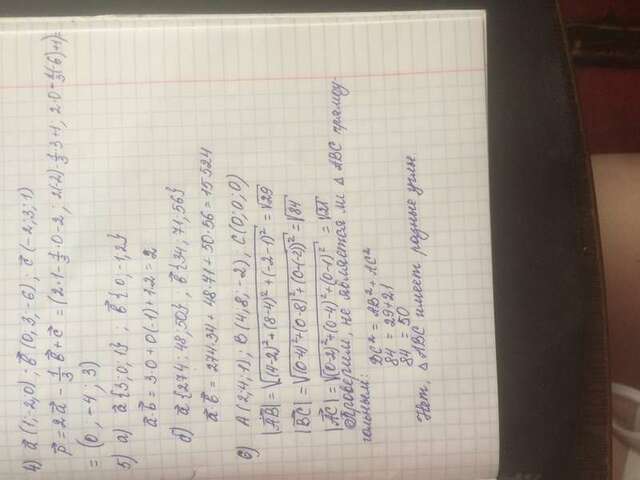 4) a⃗ (1,-2,0) ; b⃗ (0, 3, -6) ; c⃗ (-2; 3; 1)
p⃗ = 2a⃗ - 1/3 b⃗ + c⃗ = (2·1 - 1/3·0 - 2, 2(-2) - 1/3·3+1, 2·0 - 1/3(-6)+1) =
= (0, -4; 3)
5) а) a⃗ {3; 0, 1} , b⃗ {0, -1, 2}
a⃗·b⃗ = 3·0 + 0(-1) + 1·2 = 2
б) a⃗ {274; 48, 50} , b⃗ {34; 71, 56}
a⃗·b⃗ = 274·34 + 48·71 + 50·56 = 15524
6) A (2; 4, 1) ; B (4, 8, -2) , C (0; 0; 0)
|AB⃗| = √((4-2)² + (8-4)² + (-2-1)²) = √29
|BC⃗| = √((0-4)² + (0-8)² + (0-(-2))²) = √84
|AC⃗| = √((0-2)² + (0-4)² + (0-1)²) = √21
Проверим, не является ли △ ABC прямоу-
гольным:
BC² = AB² + AC²
84 = 29+21
84 = 50
Нет, △ ABC имеет разные углы